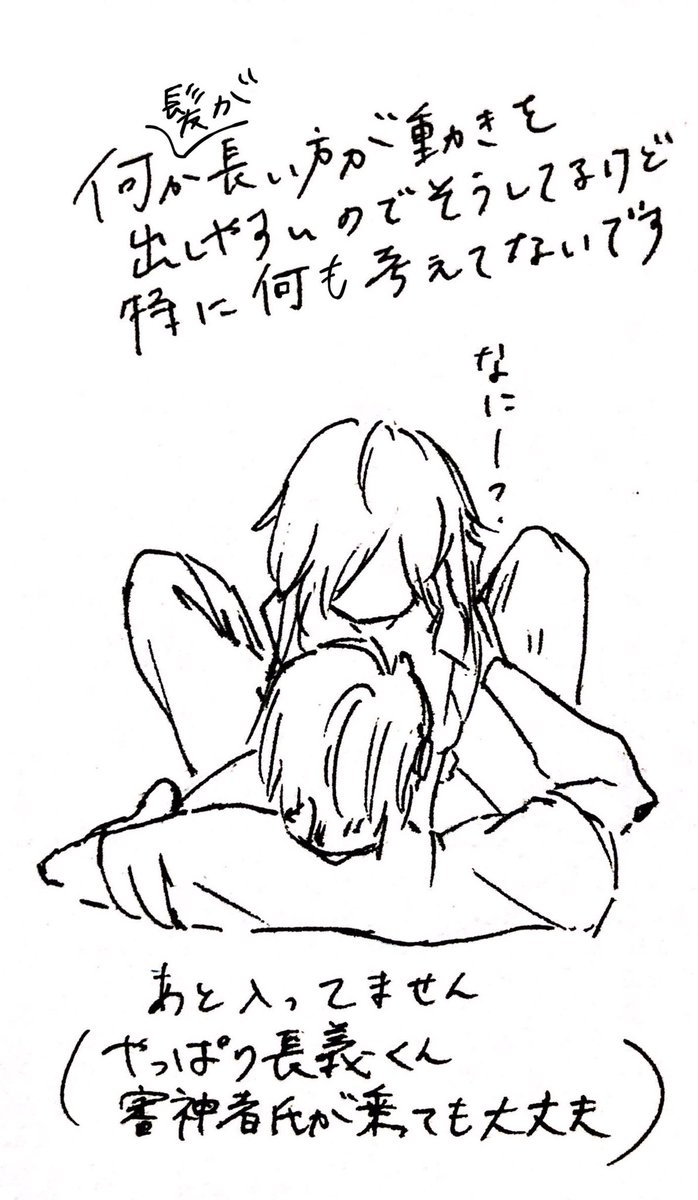 髪が
何か長い方が動きを
出しやすいのでそうしてるけど
特に何も考えてないです
なにー?
あと入ってません
(やっぱり長義くん
審神者氏が乗っても大丈夫)